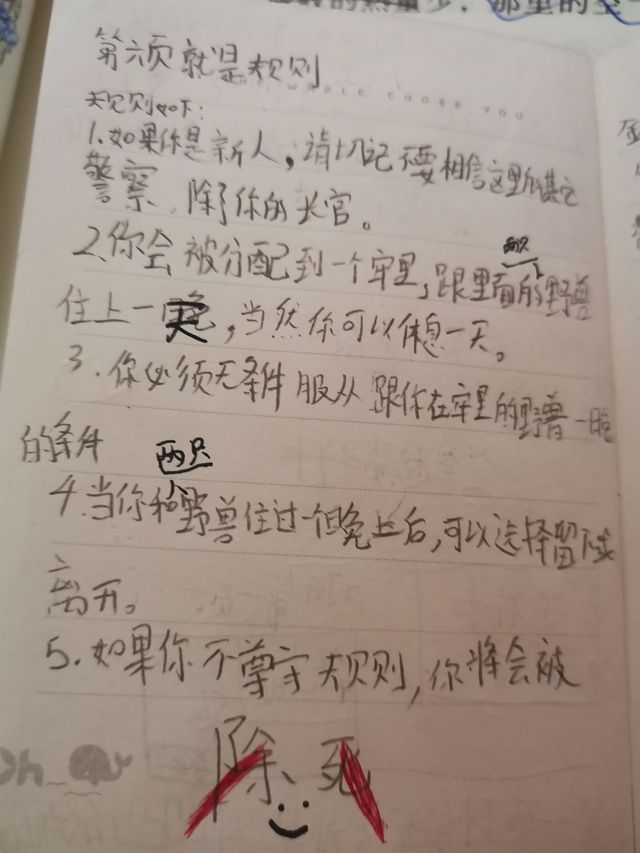 那里的至
第六页就是规则
WHALE CHOSE YOU
规则如下：
1.如果你是新人，请切记不要相信这里的其它
警察，除了你的长官。
2、你会被分配到一个牢里，跟里面的两只野兽
住上一晚，当然你可以休息一天。
3.你必须无条件服从跟你在牢里的野兽一晚
的条件
4.当你和两只野兽住过一个晚上后，可以选择留下或
离开。
5.如果你不尊守规则，你将会被
除、死
oh